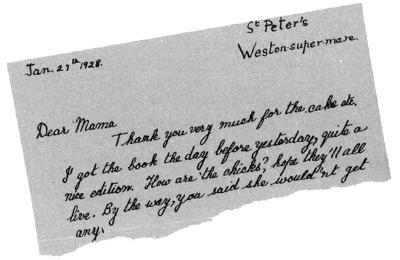 St Peter's
Weston-super-mare.
Jan. 27th 1928.
Dear Mama
Thank you very much for the cake etc.
I got the book the day before yesterday, quite a
nice edition. How are the chicks? hope they'll all
live. By the way, you said she would'nt get
any.